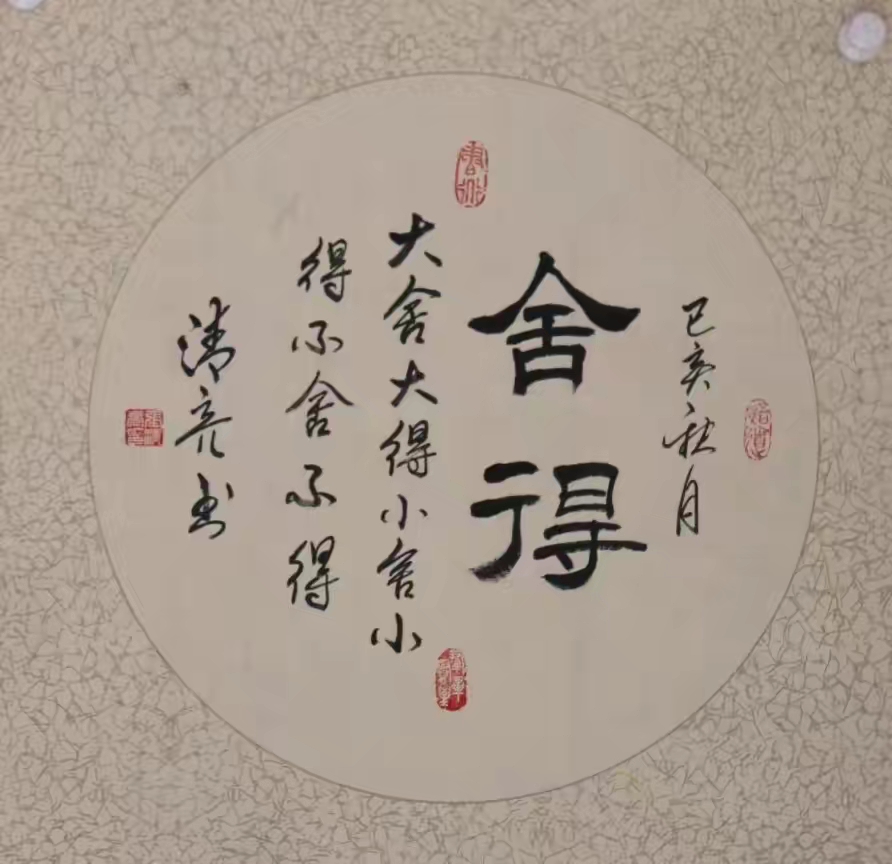 己亥秋月
舍得
大舍大得小舍小
得不舍不得
清亮书